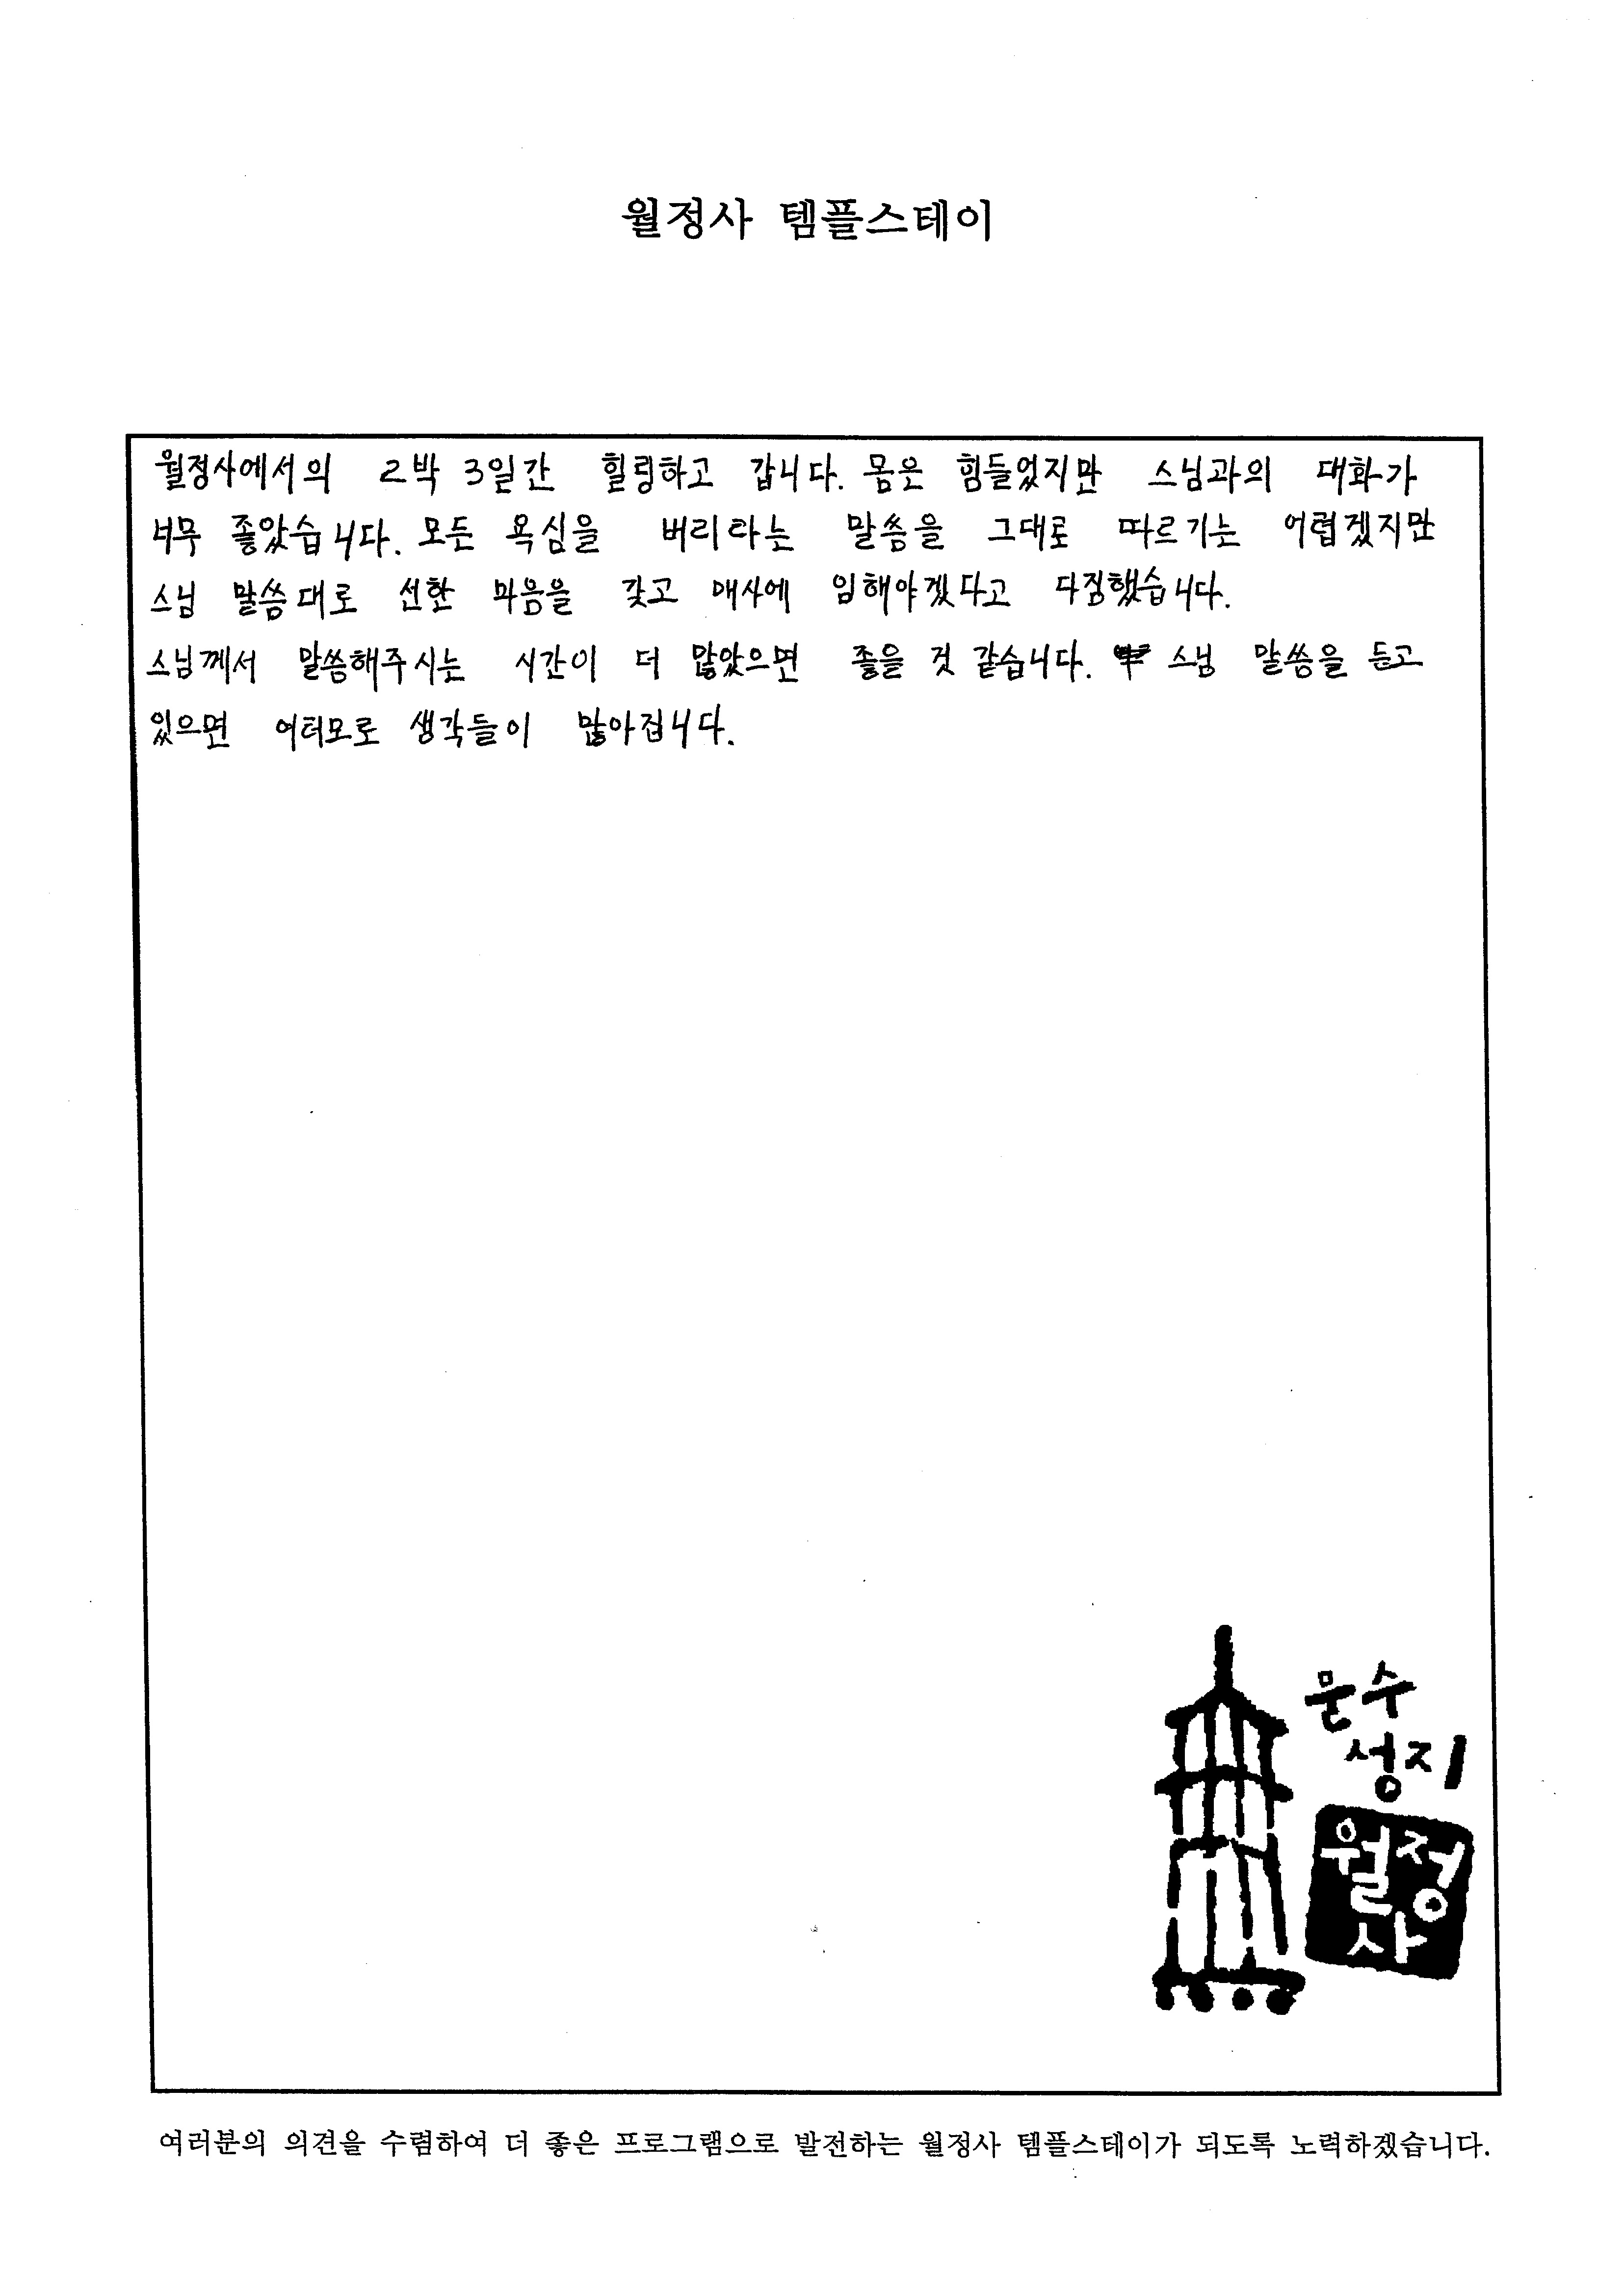 월정사 템플스테이
월정사에서의 2박 3일간 힐링하고 갑니다. 몸은 힘들었지만 스님과의 대화가
너무 좋았습니다. 모든 욕심을 버리라는 말씀을 그대로 따르기는 어렵겠지만
스님 말씀대로 선한 마음을 갖고 매사에 임해야겠다고 다짐했습니다.
스님께서 말씀해주시는 시간이 더 많았으면 좋을 것 같습니다. 스님 말씀을 듣고
있으면 여러모로 생각들이 많아집니다.
문수
성지
월정
사
여러분의 의견을 수렴하여 더 좋은 프로그램으로 발전하는 월정사 템플스테이가 되도록 노력하겠습니다.